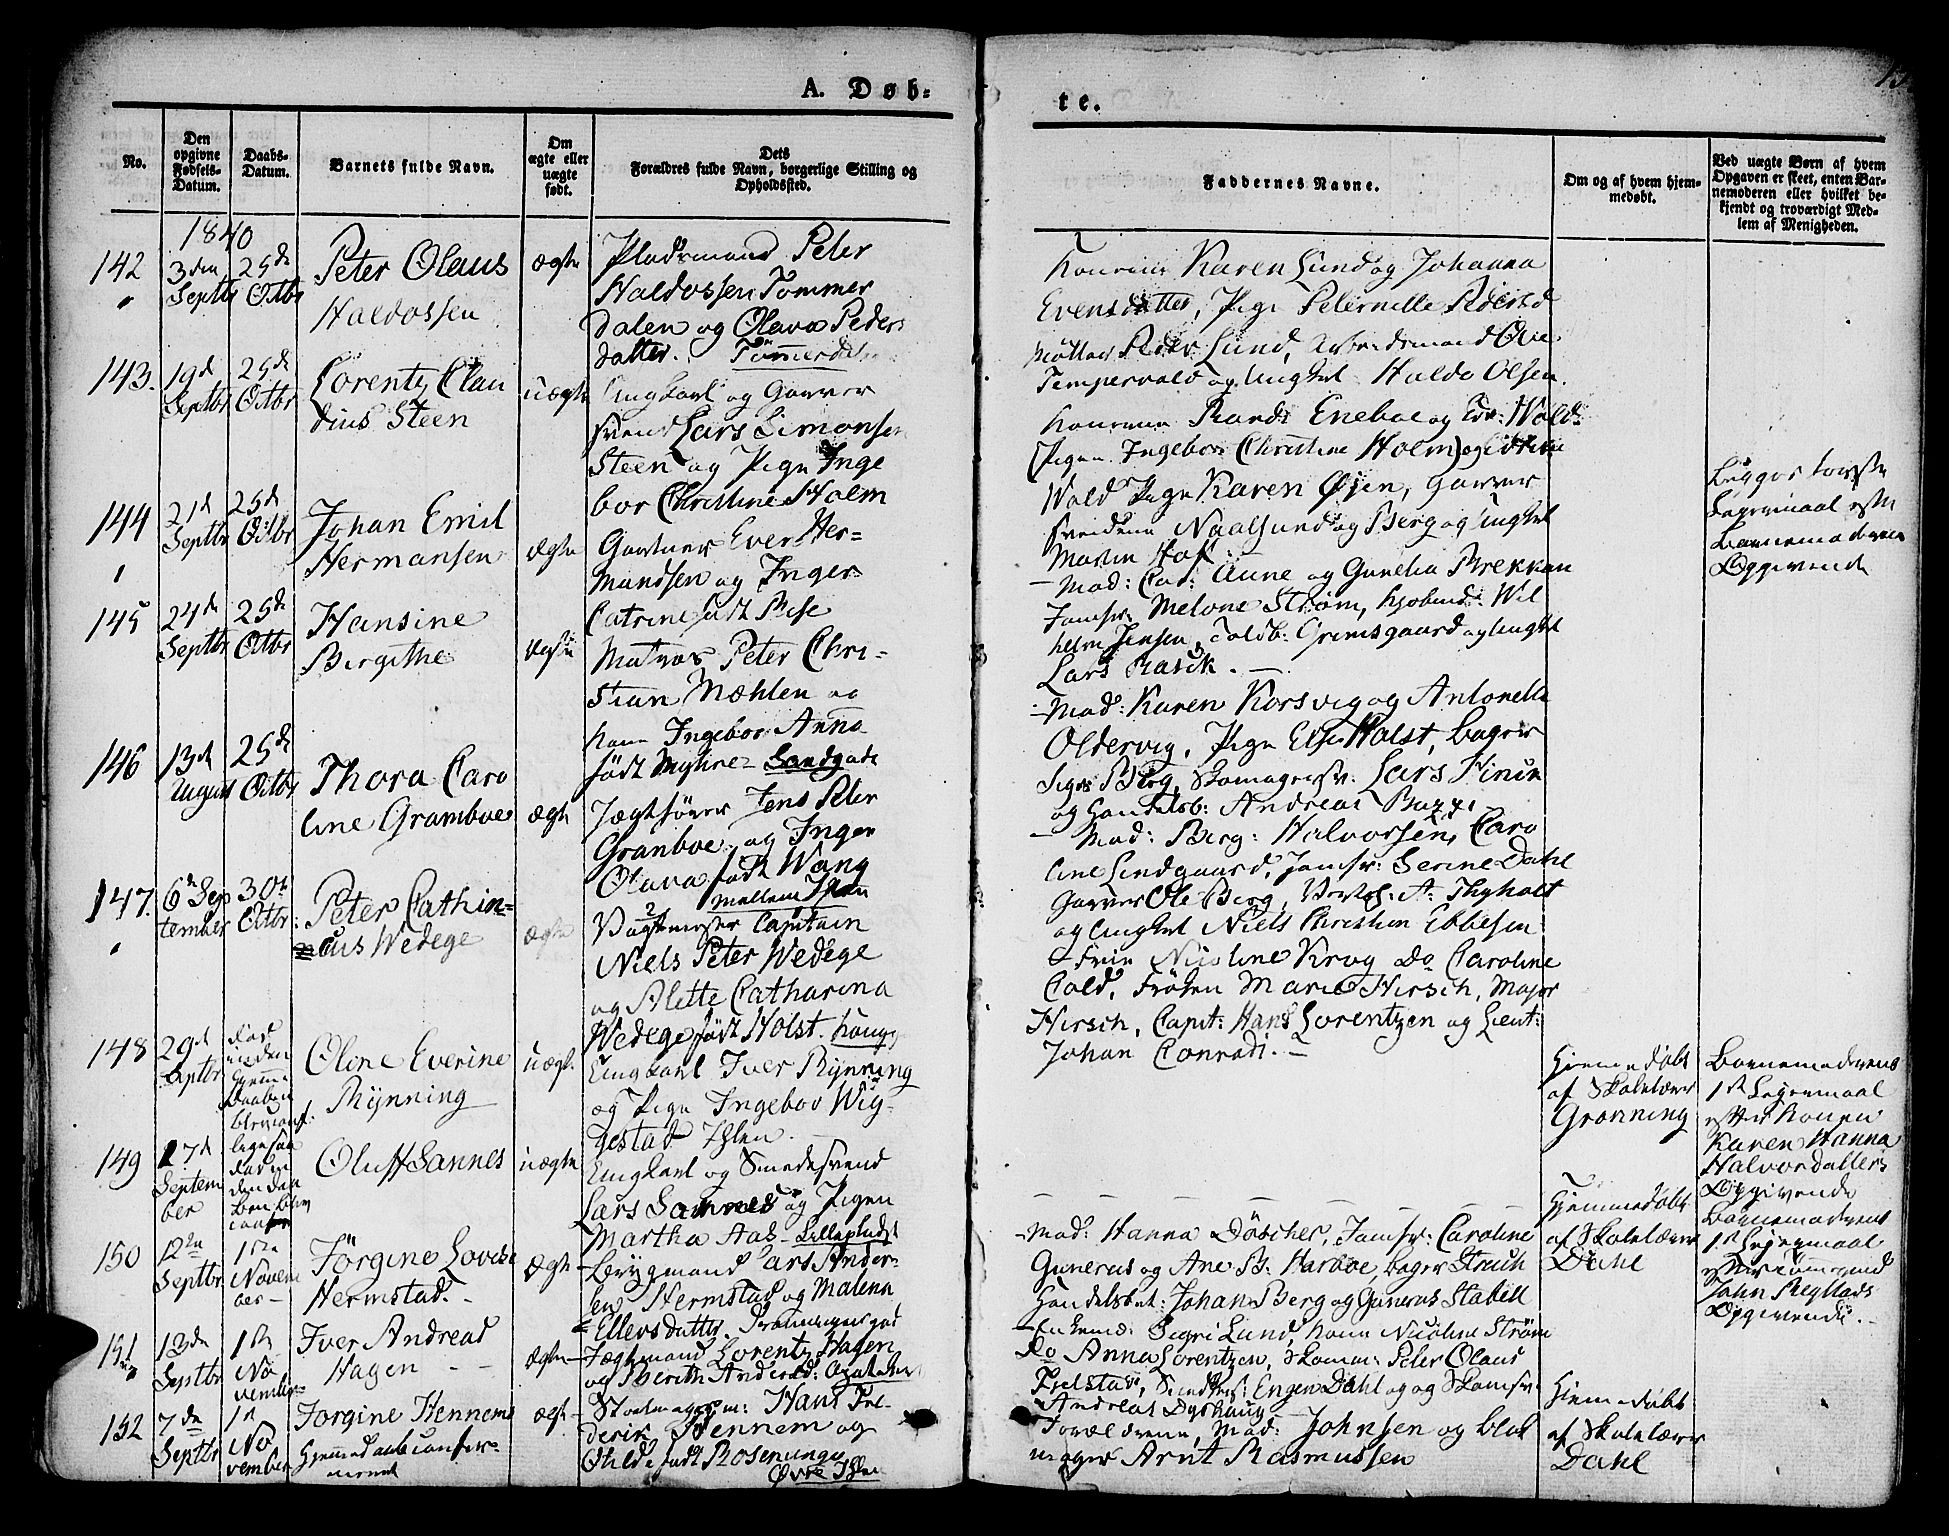 A. Døb-
te.
No.
Den opgivne Fødsels-Datum.
Daabs-Datum.
Barnets fulde Navn.
Om ægte eller uægte født.
Dets Forældres fulde Navn, borgerlige Stilling og Opholdssted.
Faddernes Navne.
Om og af hvem hjemmedøbt.
Ved uægte Børn af hvem Opgaven er skeet, enten Barnemoderen eller hvilket bekjendt og troværdigt Medlem af Menigheden.
1840
142
3den Septbr
25de Octbr
Peter Olaus
Haldossen
ægte
Pladsmand Peter
Haldossen Tømmer
dalen og Olava Peders
datter. Tømmerdalen
Konerne Karen Lund og Johanna
Evensdatter, Pige Peternille Pedersd
Peder Lund, Arbeidsmand Ole
Tempervold og Ungkarl Haldo Olsen.
143.
19d Septbr
25de Octbr
Lorentz Clau
dius Steen
uægte
Ungkarl og Garver
svend Lars Simonsen
Steen og Pige Inge
bor Christine Holm
Konerne Randi Eneboe og Wold
(Pigen Ingebor Christine Holm) og
Wold Pige Karen Øien, Garver
svendene Naalsund og Berg og Ungkarl
Morten Hof.
Begges første
Leiermaal efter
Barnemoderens
Opgivende
144
21d Septbr
25de Octbr
Johan Emil
Hermansen
ægte
Gartner Ever Her-
mansen og Inger
Catrine født Bise
Mad: Aune og Gunelia Brekken
Jomfr: Melone Strøm, Kjøbmd: Wil
helm Jensen, Toldb: Grimsgaard og Ungkarl
Lars Rasch.
145
24de Septbr
25de Octbr
Hansine
Birgithe
ægte
Matros Peter Chri-
stian Mæhlen og
Kone Ingebor Anna
født Myhre - Sandgate
Mad: Karen Korsvig og Antonette
Oldervig, Pige Else Holst, Bager
Berg, Skomagersv: Lars Finch
og Handelsb: Andreas
146
13de August
25de Octbr
Thora Caro
line Gramboe
ægte
Jægtfører Jens Peter
Granboe og Inger
Olava født Wang
Mellem Ihlen
Mad: Berg: Halvorsen, Caro
line Lindgaard, Jomfr: Serine Dahl
Garver Ole Berg, A: Thyholt
og Ungkarl Niels Christian Ebbesen
147.
6te September
30te Octbr:
Peter Cathin-
cus Wedege
ægte
Vagtmester Capitain
Niels Peter Wedege
og Alette Catharina
Wedege født Holst.
Fruin Nicoline Krog Do Caroline
Cold, Frøken Marie Hirsch, Major
Hirsch, Capit: Hans Lorentzen og Lieut:
Johan Conradi.
148
29d Septbr
Død
inden
Hjemme
Daaben
blev conf.
Oline Everine
Rynning
uægte
Ungkarl Iver Rynning
og Pige Ingebor Wig-
gestad Ihlen
Hjemmedøbt
af Skolelærer
Grønning
Barnemoderens
1ste Leiermaal
efter Konen
Karen Hanna
Halvorsdatters
Opgivende
149
17d September
ligesaa
død in
den Daa
ben blev
Oluff Sannes
uægte
Ungkarl og Smedesvend
Lars Sannes og Pigen
Martha Aas - Lilleplads
Hjemmedøbt
af Skolelærer
Dahl
Barnemoderens
1ste Leiermaal
efter Tømmermd
John Regstads
Opgivende.
150
12te Septbr
1ste November
Jørgine Lovise
Hermstad.
ægte
Brygmand Lars Ander-
sen Hermstad og Malena
Ellersdatter,
Mad: Hanna Döscher, Jomfr: Caroline
Gunerus og Ane B: Harboe, Bager Struch
Handelsbet: Johan Berg og Gunerus Stabell
151
13de Septbr
1ste November
Iver Andreas
Hagen
ægte
Jægtemand Lorentz Hagen
og Berith Andersd:
Enkene: Sigri Lund, Kone Nicoline Strøm
Do Anna Lorentzen, Skom: Peter Olaus
Frelstad, Engen Dahl og Skomsv:
Andreas Dyshaug
152
7de Septbr
1ste November
Jørgine Hennem
Hjemmedaab confir-
meret
ægte
Hans Fre-
derik Hennem og
Othilde født Rosenunge
Øvre Ihlen
Forældrene, Mad: Johnsen og Blok
mager Arnt Rasmussen
Hjemmedøbt
af Skolelærer
Dahl